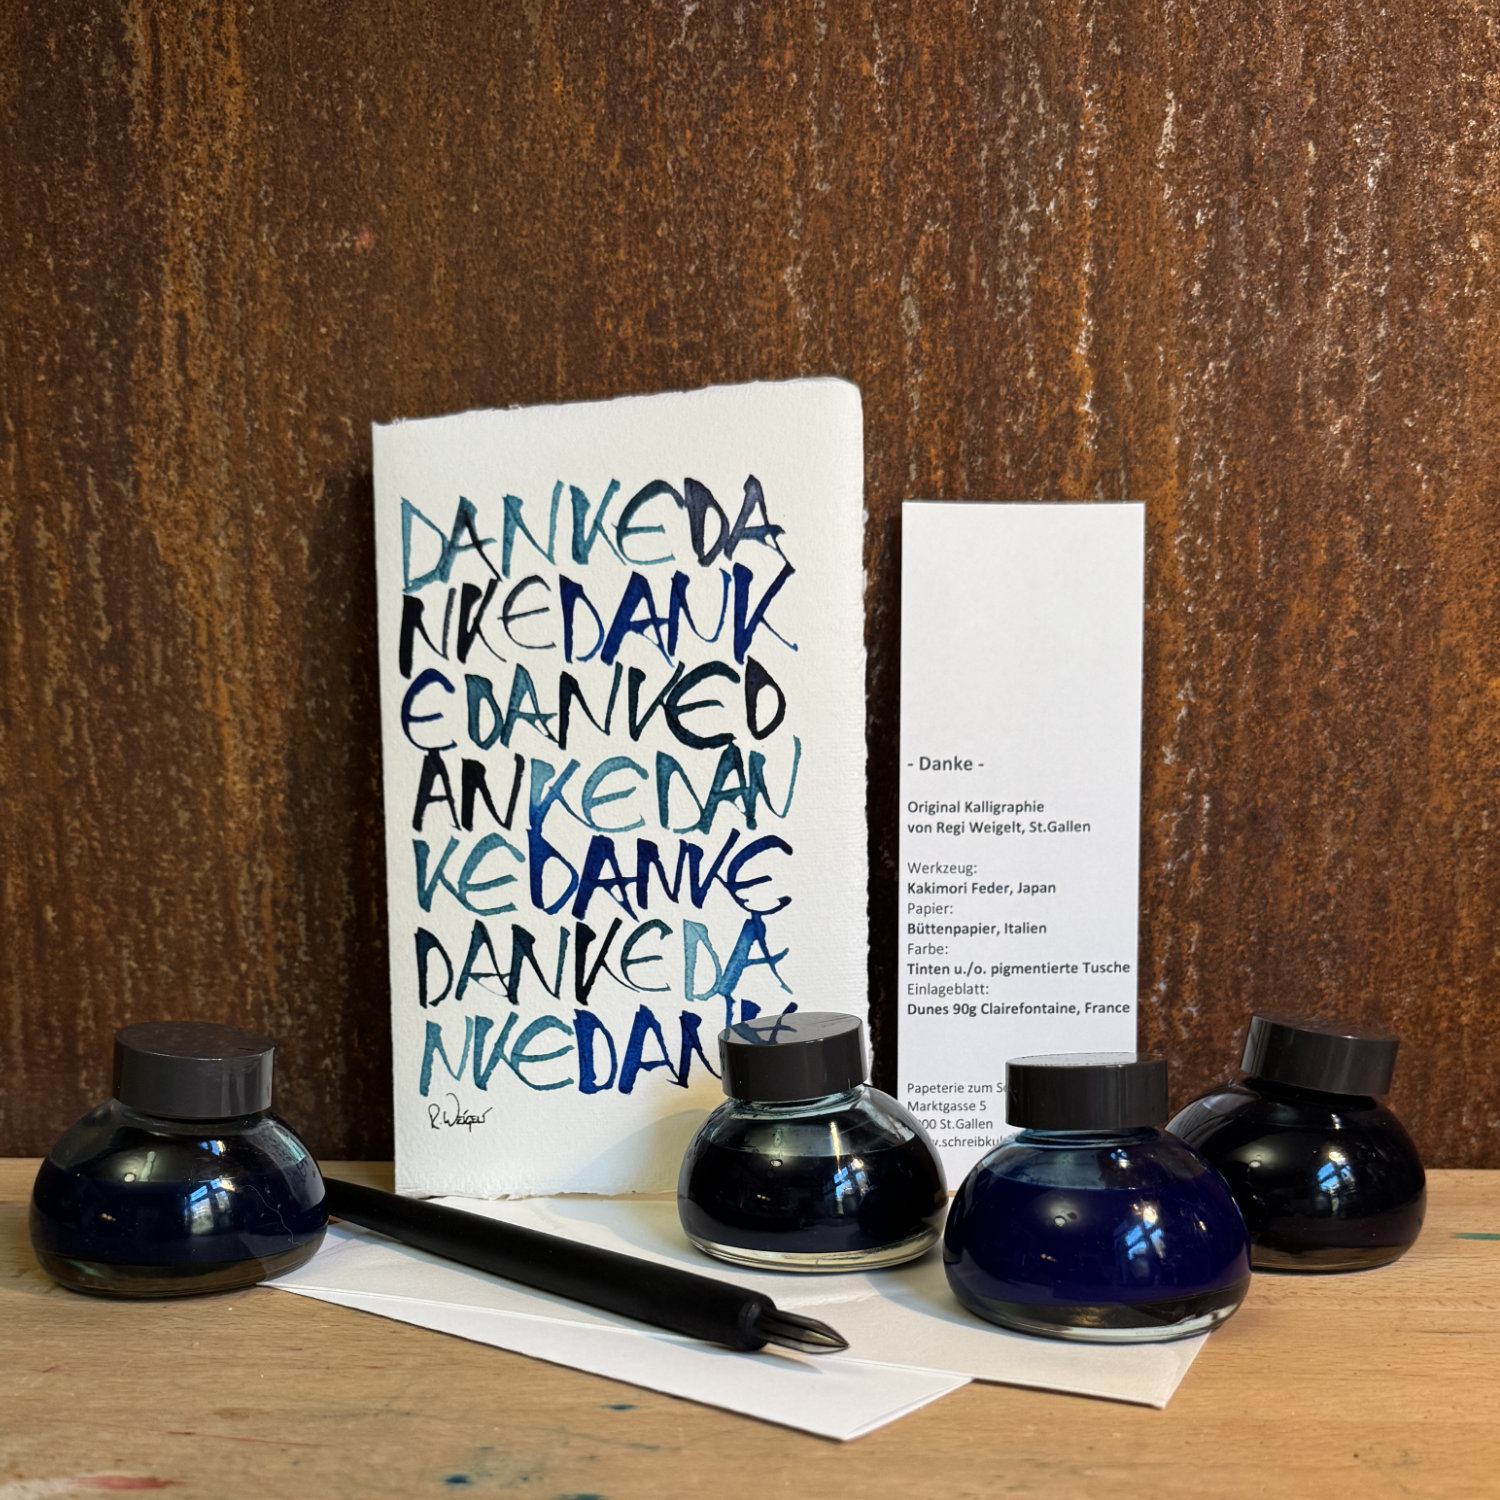 DANKEDA
NKEDANK
EDANKED
ANKEDAN
KEDANKE
DANKEDA
NKEDANK
R. Weigelt
- Danke -
Original Kalligraphie
von Regi Weigelt, St.Gallen
Werkzeug:
Kakimori Feder, Japan
Papier:
Büttenpapier, Italien
Farbe:
Tinten u./o. pigmentierte Tusche
Einlageblatt:
Dunes 90g Clairefontaine, France
Papeterie zum
Marktgasse 5
St.Gallen